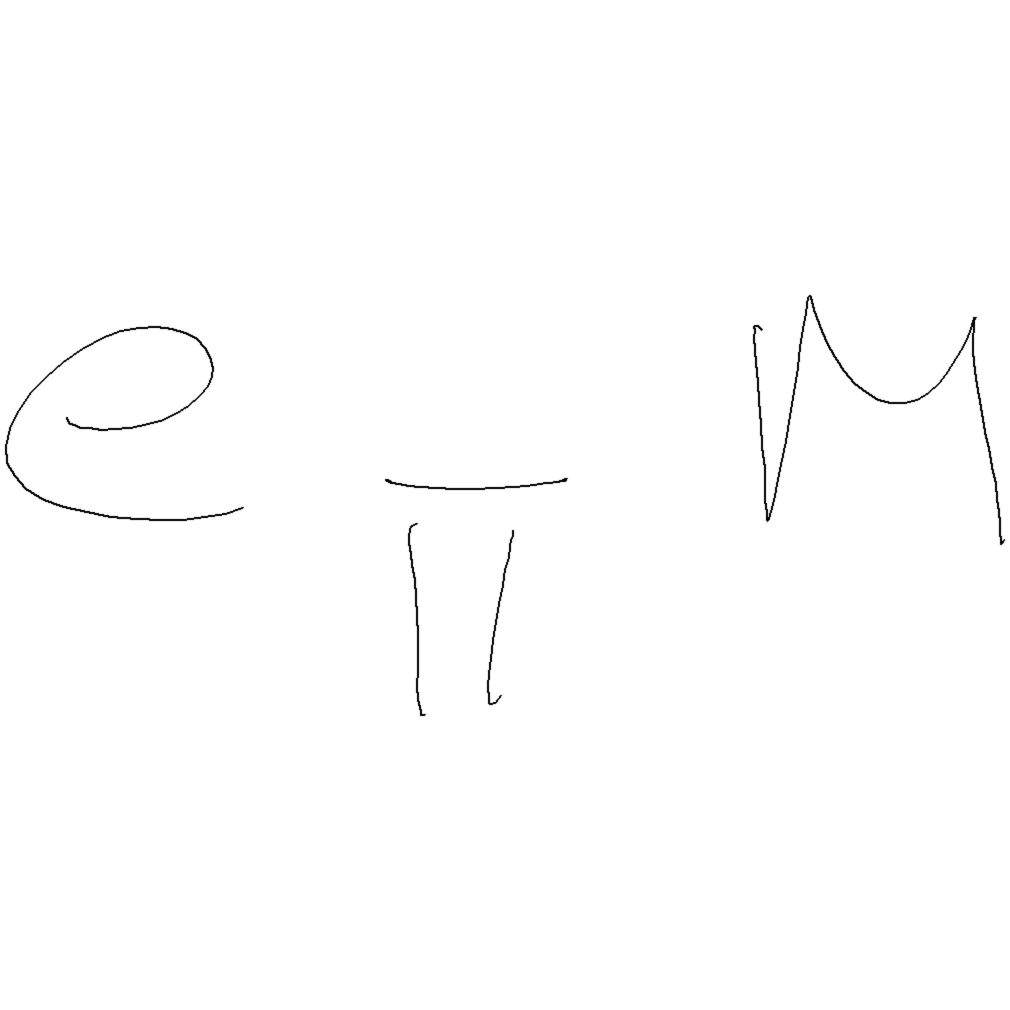 e π M